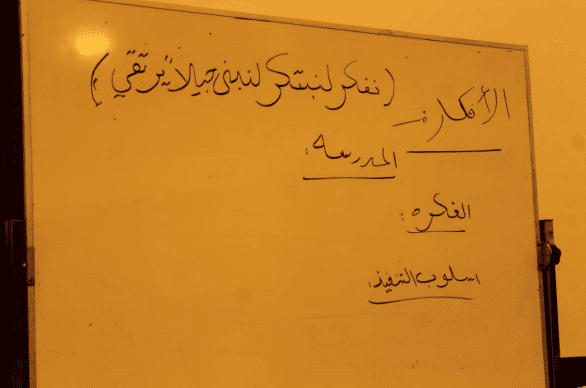 الأفكار :- (نفكر لنبتكر لنبني جيلاً يرتقي)
المدرسه :
الفكره :
اسلوب التنفيذ :